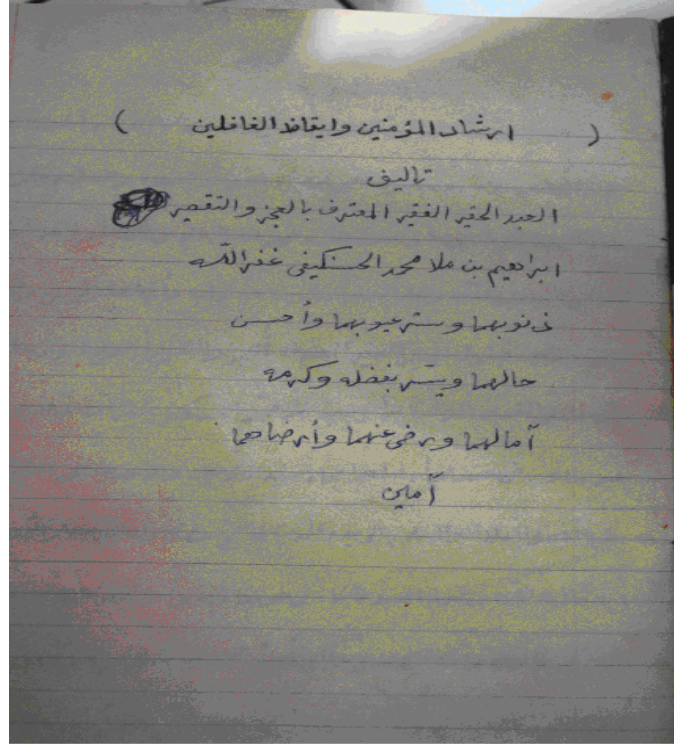 ( ارشاد المؤمنين وايقاظ الغافلين )
تاليف
العبد الحقير الفقير المعترف بالعجز والتقصير
ابراهيم بن ملا محمد الحسنكيفى غفر الله
ذنوبهما وستر عيوبهما وأحسن
حالهما ويسر بفضله وكرمه
آمالهما ورضى عنهما وأرضاهما
آمين